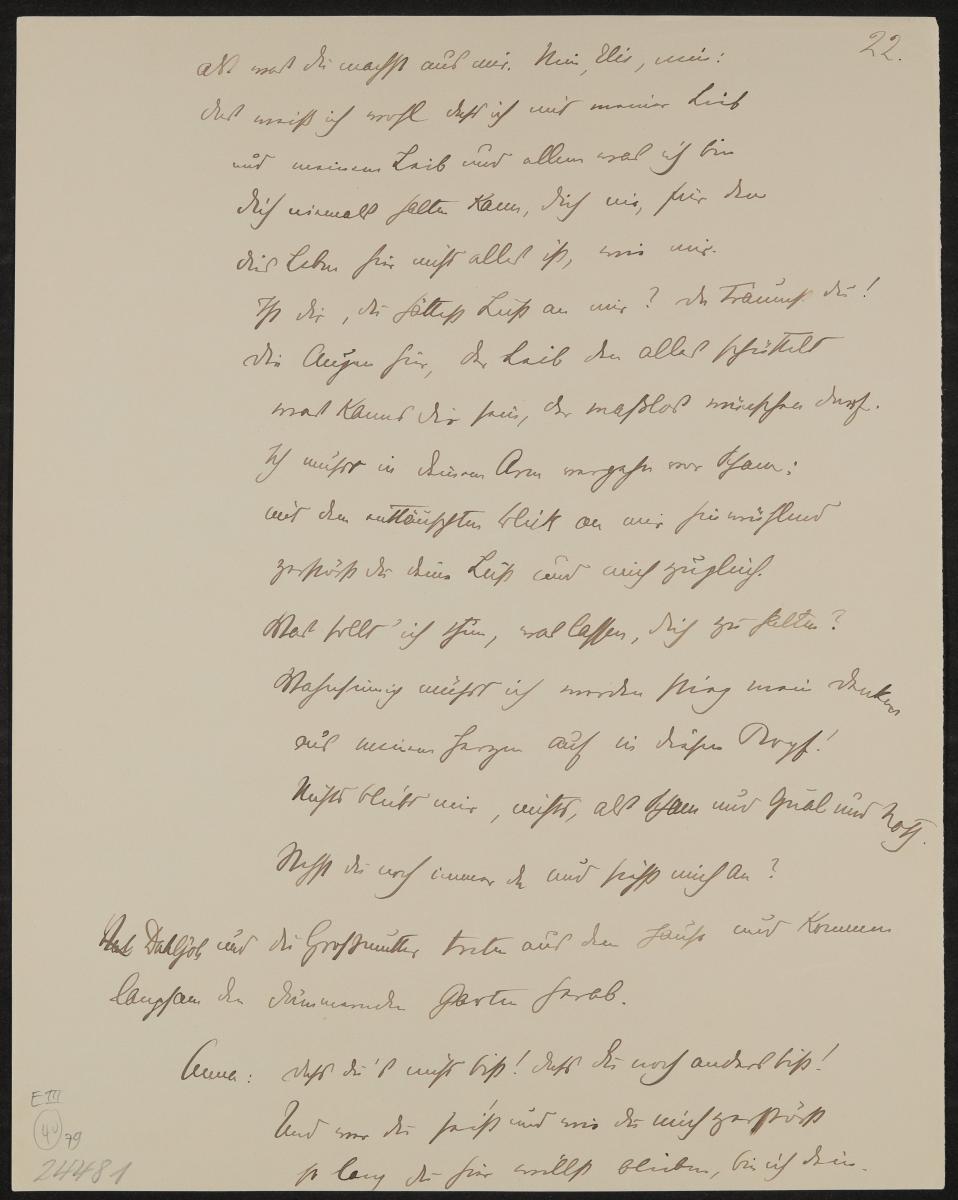 22.
als was du machst aus mir. Nein, Elis, nein:
das weiß ich wohl daß ich mit meiner Lieb
und meinem Leib und allem was ich bin
dich niemals halten kann, dich nie, für den
dies Leben hier nicht alles ist, wie mir.
Ist dir, du hättest Lust an mir? Du träumst du!
Die Augen hier, der Leib den alles schüttelt
was kann's dir sein, der maßlos wünschen darf.
Ich müsst in deinem Arm vergehn vor Scham:
mit dem enttäuschten Blick an mir hinwühlend
zerstörst du deine Lust und mich zugleich.
Was sollt' ich thun, was lassen, dich zu halten?
Wahnsinnig müsst ich werden stieg mein Denken
aus meinem Herzen auf in diesen Kopf!
Nichts bleibt mir, nichts, als Scham und Qual und Noth.
Stehst du noch immer da und siehst mich an?
Dahljöh und die Großmutter treten aus dem Hause und kommen
langsam den dämmernden Garten herab.
Anna: daß du's nicht bist! daß du noch anders bist!
Und wer du seist und wie du mich zerstörst
so lang du hier willst bleiben, bin ich dein.
E III
40
79
24481